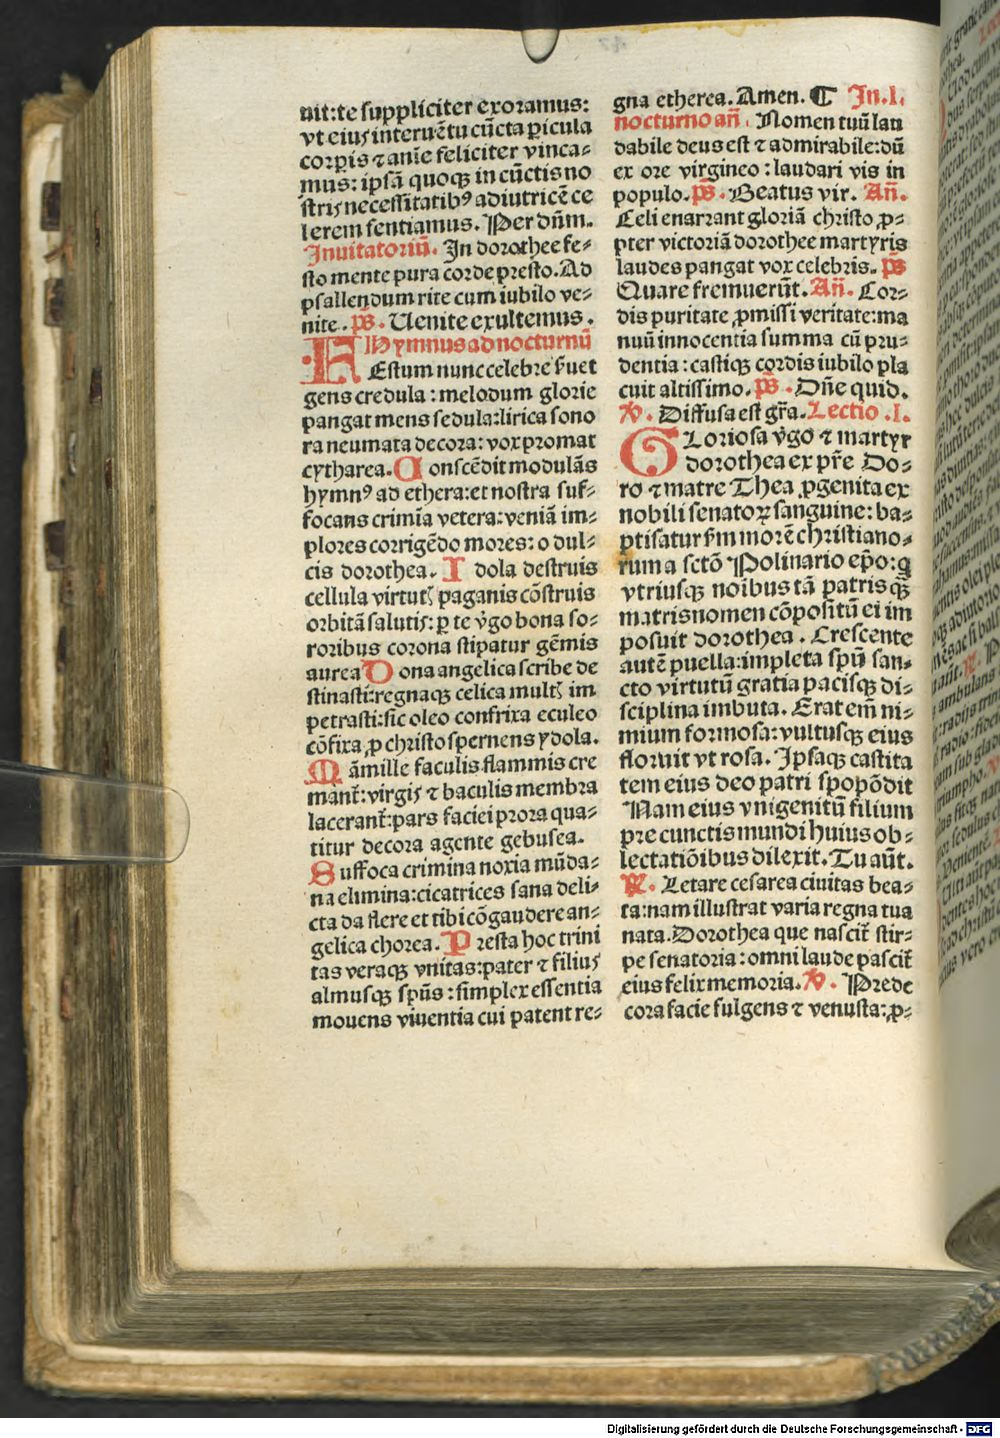 nit:te suppliciter exoramus:
vt eiꝰ interuētu cūcta ꝑicula
corꝑis ⁊ anīe feliciter vinca⸗
mus: ipsā quoqꝫ in cūctis no
stris necessitatibꝰ adiutricē ce
lerem sentiamus. Per dn̄m.
Inuitatoriū. In dorothee fe⸗
sto mente pura corde presto. Ad
psallendum rite cum iubilo ve⸗
nite. p̄s. Uenite exultemus.
Hymnus ad nocturnū
FEstum nunc celebre v̄uet
gens credula: melodum glorie
pangat mens sedula: lirica sono
ra neumata decora: vox promat
cytharea. Conscēdit modulās
hymnꝰ ad ethera: et nostra suf⸗
focans crimīa vetera: veniā im⸗
plores corrigēdo mores: o dul⸗
cis dorothea. Idola destruis
cellula virtutꝭ paganis cōstruis
orbitā salutis: ꝑ te v̄go bona so⸗
roribus corona stipatur gēmis
aurea Dona angelica scribe de
stinasti: regnaqꝫ celica multꝭ im
petrasti: sic oleo confrixa eculeo
cōfixa ꝓ christo spernens ydola.
Māmille faculis flammis cre
mant̄: virgis ⁊ baculis membra
lacerant̄: pars faciei prora qua⸗
titur decora agente gebusea.
Suffoca crimina noxia mūda⸗
na elimina: cicatrices sana deli⸗
cta da flere et tibi cōgaudere an⸗
gelica chorea. Presta hoc trini
tas veraqꝫ vnitas: pater ⁊ filius
almusqꝫ spūs: simplex essentia
mouens viuentia cui patent re⸗
gna etherea. Amen. ¶ In .I.
nocturno an̄. Nomen tuū lau
dabile deus est ⁊ admirabile: dū
ex ore virgineo: laudari vis in
populo. p̄s. Beatus vir. An̄.
Celi enarrant gloriā christo ꝓ⸗
pter victoriā dorothee martyris
laudes pangat vox celebris. p̄s
Quare fremuerūt. An̄. Cor⸗
dis puritate ꝓmissi veritate: ma
nuū innocentia summa cū pru⸗
dentia: castiqꝫ cordis iubilo pla
cuit altissimo. p̄s. Dn̄e quid.
℣. Diffusa est gr̄a. Lectio .I.
GLoriosa v̄go ⁊ martyr
dorothea ex pr̄e Do⸗
ro ⁊ matre Thea ꝓgenita ex
nobili senatoꝝ sanguine: ba⸗
ptisatur s̄m morē christiano⸗
rum a sctō Polinario ep̄o: q
vtriusqꝫ noībus tā patris qꝫ̄
matris nomen cōpositū ei im
posuit dorothea. Crescente
autē puella: impleta spū san⸗
cto virtutū gratia pacisqꝫ di⸗
sciplina imbuta. Erat em̄ ni⸗
mium formosa: vultusqꝫ eius
floruit vt rosa. Ipsaqꝫ castita
tem eius deo patri spopōdit
Nam eius vnigenitū filium
pre cunctis mundi huius ob⸗
lectatiōibus dilexit. Tu aūt.
℟. Letare cesarea ciuitas bea⸗
ta: nam illustrat varia regna tua
nata. Dorothea que nascit̄ stir⸗
pe senatoria: omni laude pascit̄
eius felix memoria. ℣. Prede
cora facie fulgens ⁊ venusta: ꝓ⸗
Digitalisierung gefördert durch die Deutsche Forschungsgemeinschaft - DFG